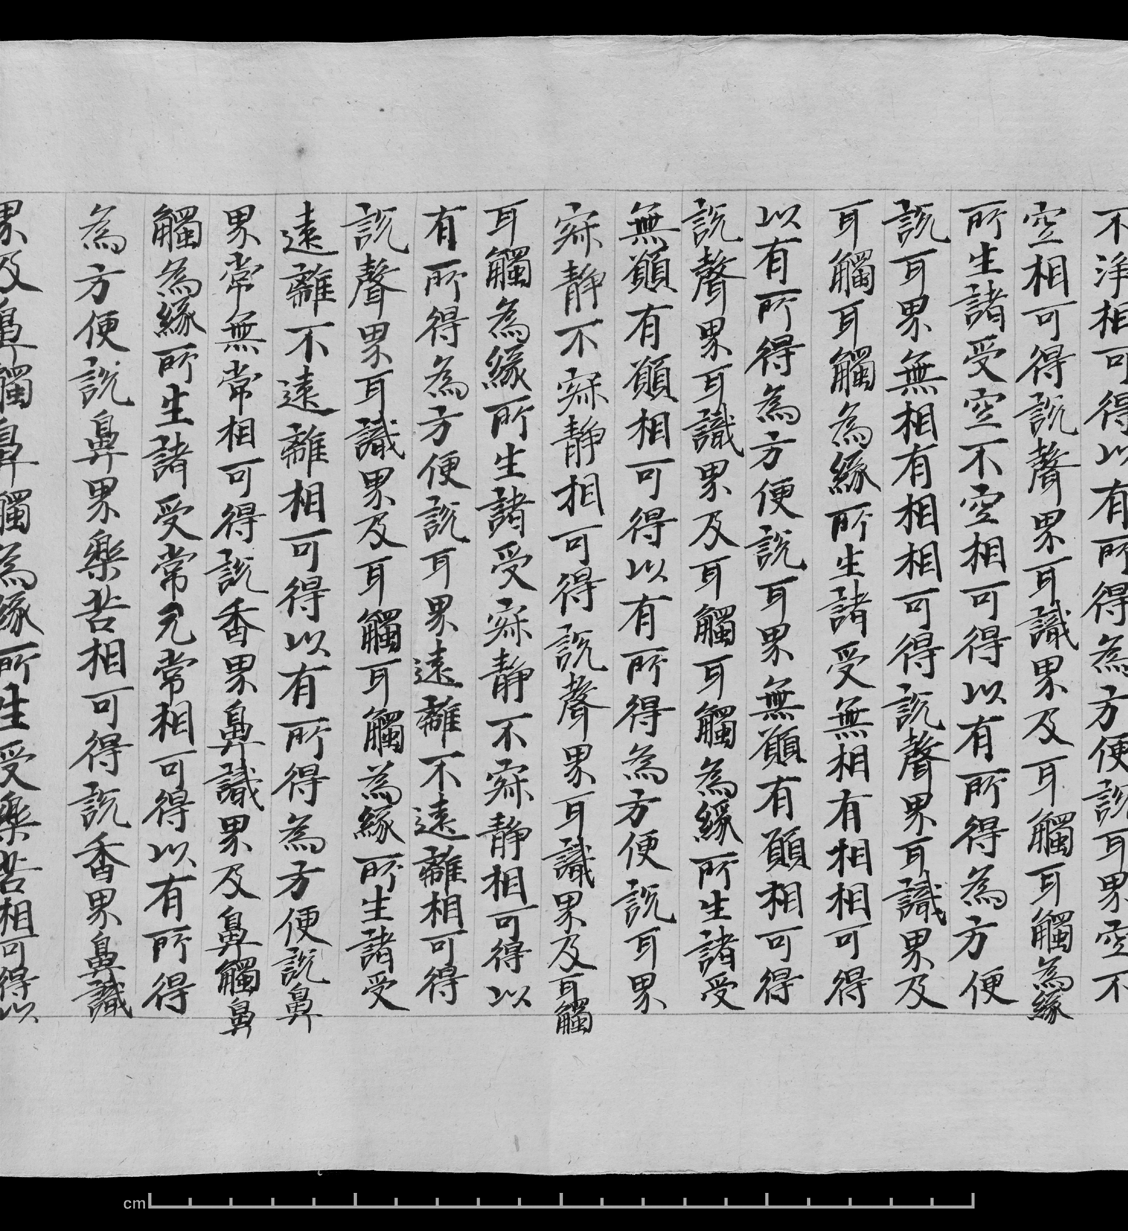 不淨相可得以有所得為方便說耳界空不
空相可得說聲界耳識界及耳觸耳觸為緣
所生諸受空不空相可得以有所得為方便
說耳界無相有相相可得說聲界耳識界及
耳觸耳觸為緣所生諸受無相有相相可得
以有所得為方便說耳界無願有願相可得
說聲界耳識界及耳觸耳觸為緣所生諸受
無願有願相可得以有所得為方便說耳界
寂靜不寂靜相可得說聲界耳識界及耳觸
耳觸為緣所生諸受寂靜不寂靜相可得以
有所得為方便說耳界遠離不遠離相可得
說聲界耳識界及耳觸耳觸為緣所生諸受
遠離不遠離相可得以有所得為方便說鼻
界常無常相可得說香界鼻識界及鼻觸鼻
觸為緣所生諸受常无常相可得以有所得
為方便說鼻界樂苦相可得說香界鼻識
界及鼻觸鼻觸為緣所生受樂苦相可得以